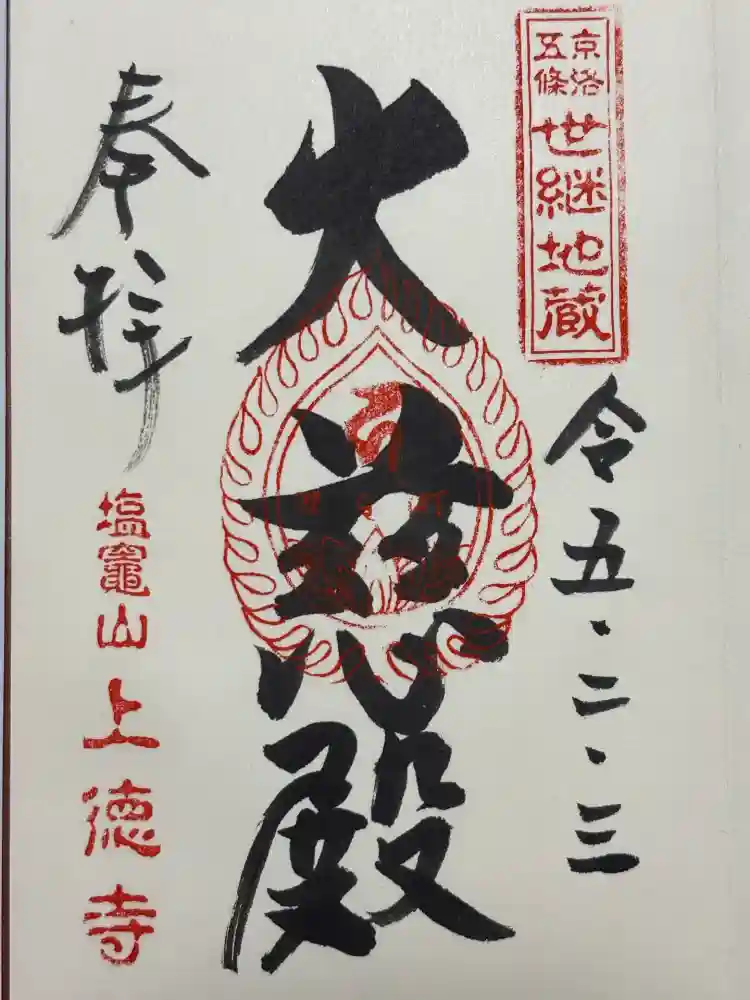 京洛
五條
世継地蔵
令五・二・三
大慈殿
奉拝
塩竈山上徳寺